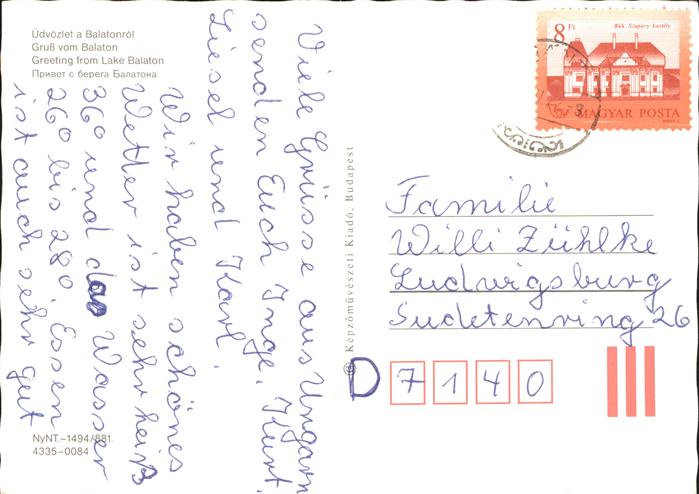 Üdvözlet a Balatonról
Gruß vom Balaton
Greeting from Lake Balaton
Привет с берега Балатона
Viele Grüsse aus Ungarn
senden Euch Inge, Kurt,
Liesel und Karl.
Wir haben schönes
Wetter ist sehr heiß
36° und das Wasser
26° bis 28°. Essen
ist auch sehr gut
NyNT.–1494/881.
4335–0084
© Képzőművészeti Kiadó, Budapest
8 Ft
Bük. Szapáry kastély
MAGYAR POSTA
Familie
Willi Zühlke
Ludwigsburg
Sudetenring 26
D 7140